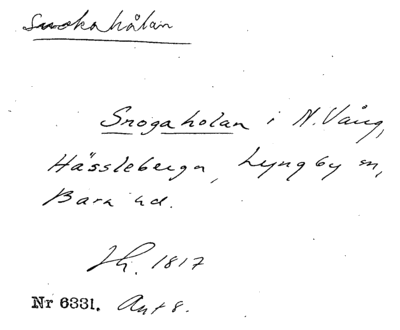 Snokahålan
Snogaholan i N. Vång,
Hässleberga, Lyngby sn,
Bara hd.
Jh. 1817
Nr 6331. Ant 8.